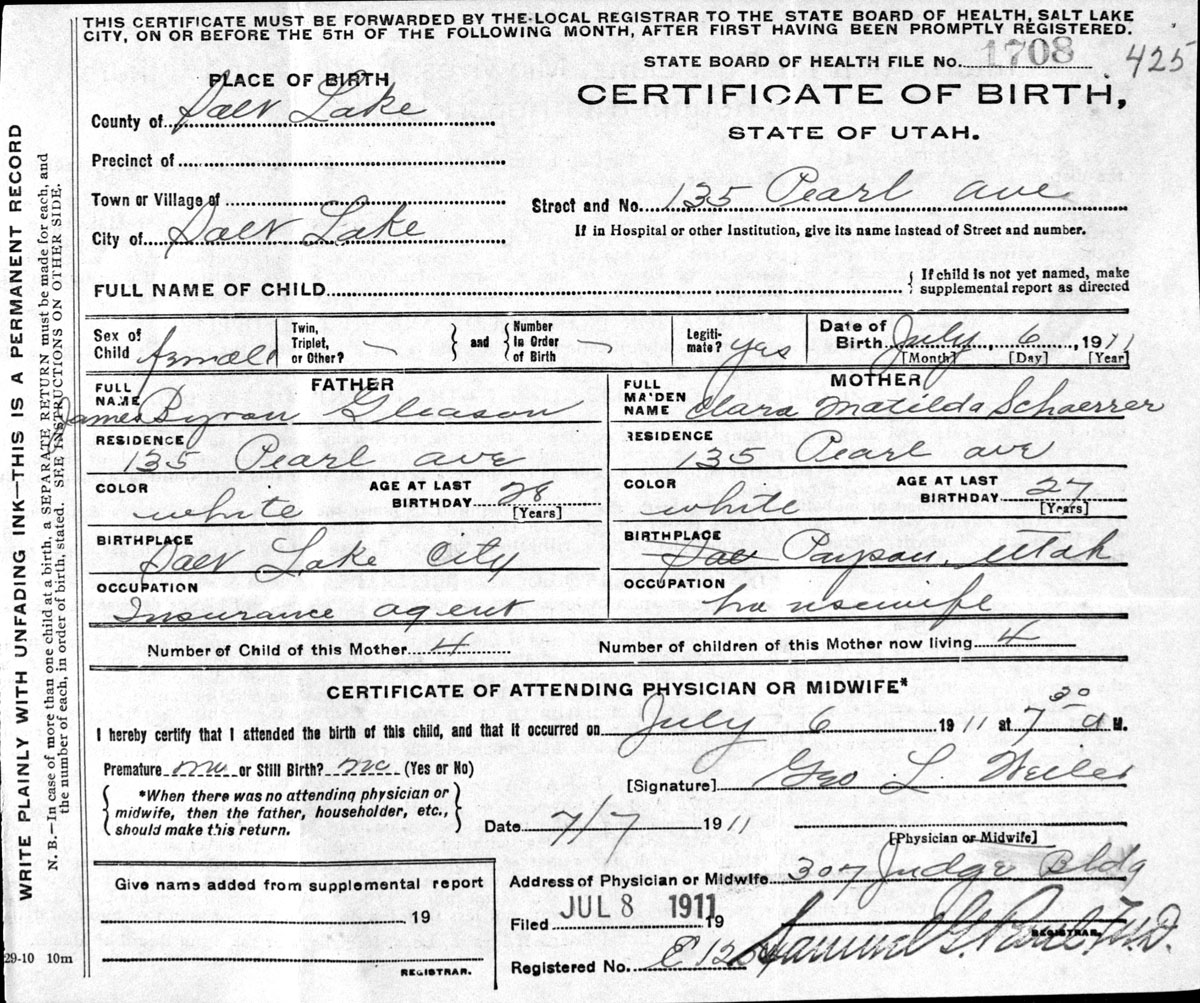 THIS CERTIFICATE MUST BE FORWARDED BY THE LOCAL REGISTRAR TO THE STATE BOARD OF HEALTH, SALT LAKE
CITY, ON OR BEFORE THE 5TH OF THE FOLLOWING MONTH, AFTER FIRST HAVING BEEN PROMPTLY REGISTERED.
STATE BOARD OF HEALTH FILE No. 1708 425
PLACE OF BIRTH,
CERTIFICATE OF BIRTH,
STATE OF UTAH.
County of Salt Lake
Precinct of
Town or Village of
Street and No. 135 Pearl ave
City of Salt Lake
If in Hospital or other Institution, give its name instead of Street and number.
FULL NAME OF CHILD
{ If child is not yet named, make
supplemental report as directed
Sex of Child Female
Twin, Triplet, or Other? —
} and {
Number In Order of Birth —
Legiti-mate? yes
Date of Birth July 6, 1911
[Month] [Day] [Year]
FATHER
FULL NAME James Byron Gleason
RESIDENCE
135 Pearl ave
COLOR white
AGE AT LAST BIRTHDAY 28 [Years]
BIRTHPLACE
Salt Lake City
OCCUPATION
Insurance agent
MOTHER
FULL MAIDEN NAME Clara Matilda Schaerrer
RESIDENCE
135 Pearl ave
COLOR white
AGE AT LAST BIRTHDAY 27 [Years]
BIRTHPLACE
Payson, Utah
OCCUPATION
housewife
Number of Child of this Mother 4 Number of children of this Mother now living 4
CERTIFICATE OF ATTENDING PHYSICIAN OR MIDWIFE*
I hereby certify that I attended the birth of this child, and that it occurred on July 6 1911 at 7 30 a M.
Premature no or Still Birth? no (Yes or No)
[Signature] Geo L. Weiler
{ *When there was no attending physician or
midwife, then the father, householder, etc.,
should make this return. }
Date 7/7 1911
[Physician or Midwife]
Address of Physician or Midwife 307 Judge Bldg
Give name added from supplemental report
19
REGISTRAR.
Filed JUL 8 1911 19
REGISTRAR.
Registered No.
29-10 10m
WRITE PLAINLY WITH UNFADING INK—THIS IS A PERMANENT RECORD
N. B.—In case of more than one child at a birth, a SEPARATE RETURN must be made for each, and
the number of each, in order of birth, stated. SEE INSTRUCTIONS ON OTHER SIDE.